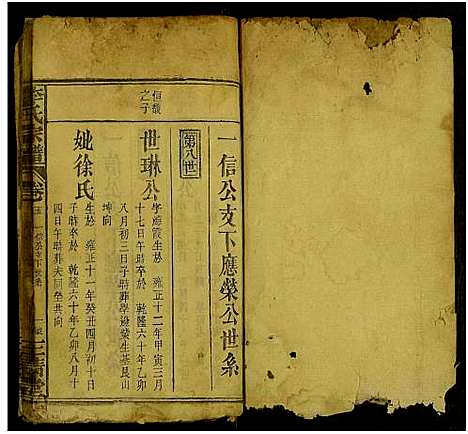 一信公支下應榮公世系
第八世
信馥之子
世琳公
字 霞生於 雍正十二年甲寅三月
十七日午時卒於 乾隆六十年乙卯
八月初三日子時葬學 塋基艮山
坤向
妣徐氏
生於 雍正十一年癸丑四月初十日
子時卒於 乾隆六十年乙卯八月十
四日午時葬夫同塋共向
氏宗譜
卷